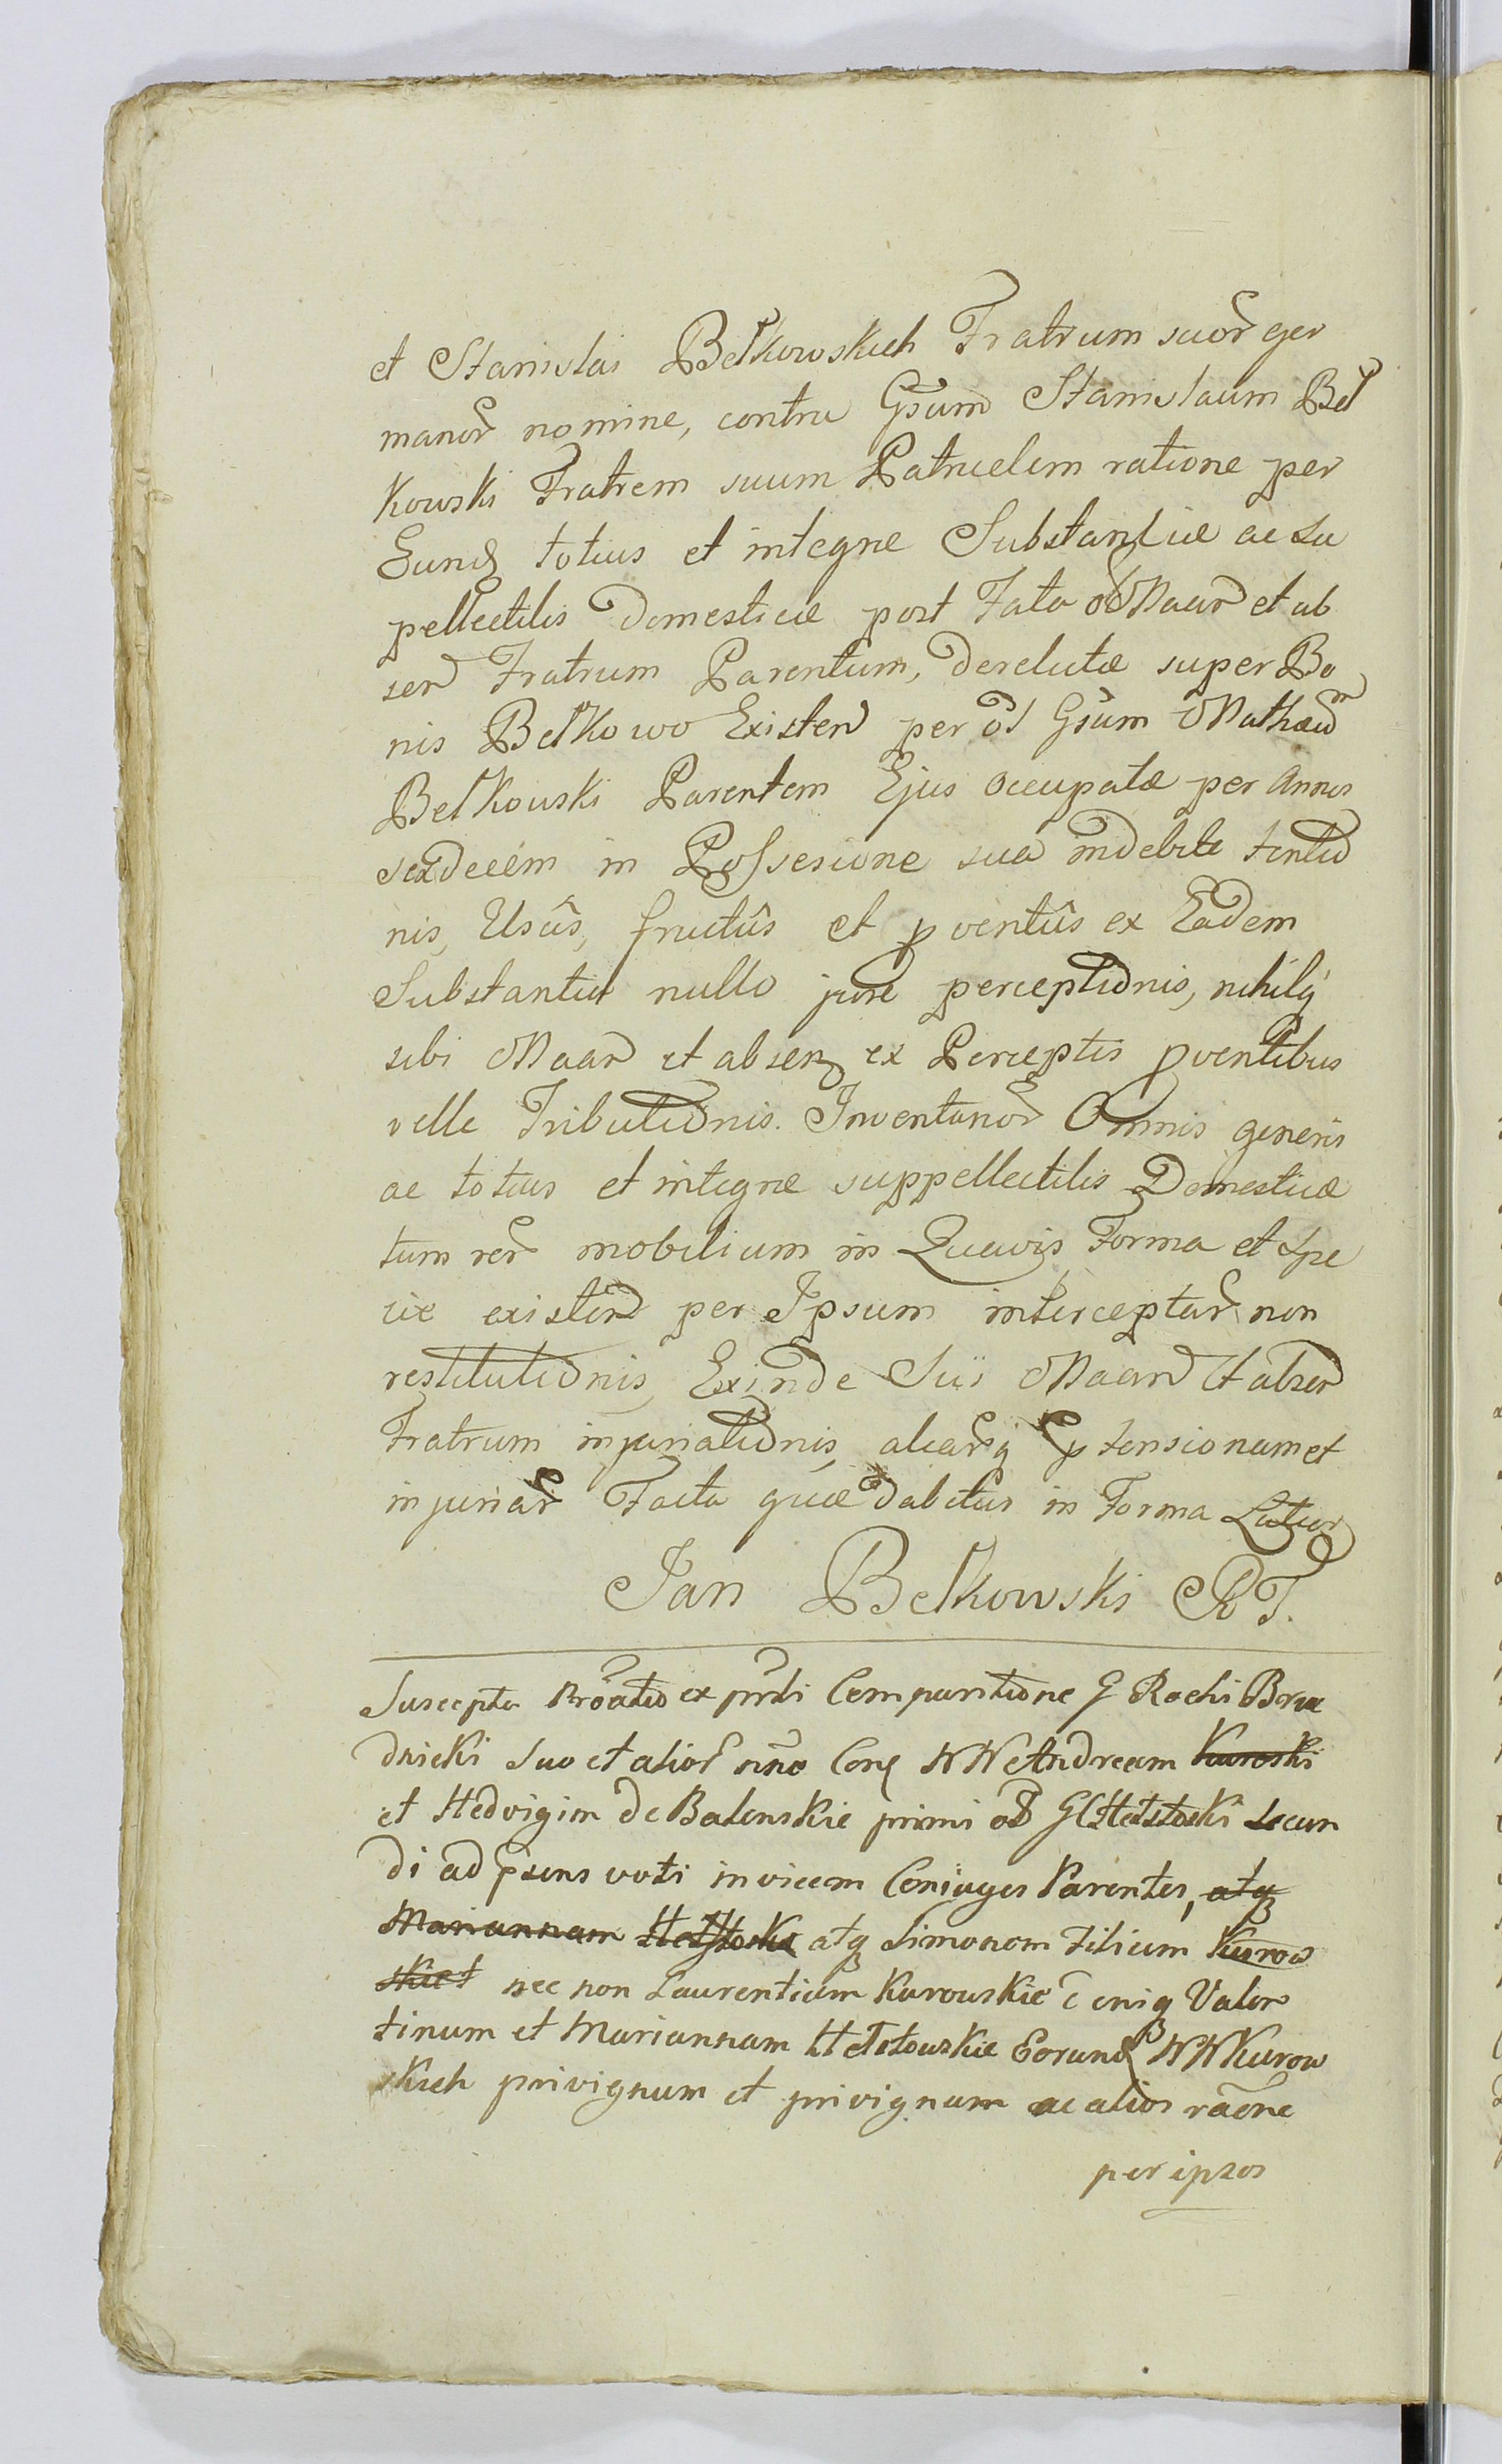 et Stanislai Bełkowskich Fratrum suor ger
manor nomine, contra Gsum Stanislaum Beł
kowski Fratrem suum Patruelem ratione per
Eund totius et integræ Substantiæ ac su
pellectilis Domesticæ post Fata od Maar et ab
sen Fratrum Parentum, Derelictæ super Bo
nis Bełkowo Existen per od Gsum Mathæum
Bełkowski Parentem Ejus occupatæ per Annos
sexdecem in Possesione sua indebite tentio
nis, Usûs, fructûs et pventûs ex Eadem
Substantia nullo jure perceptionis, nihilq
sibi Maar et absen ex Perceptis pventibus
velle Tributionis. Inventarior Omnis generis
ac totius et integræ suppellectilis Domesticæ
tum rer mobilium in Quavis Forma et spe
cie existen per Ipsum interceptar non
restitutionis, Exinde Sui Maar et absen
Fratrum injuriationis, aliarq ptensionum et
injuriar Facta quæ dabitur in Forma Latior
Jan Bełkowski RT.
Suscepta Proatio ex pnti Comparitione G Rochi Boru
dzicki suo et alior nne Con NN Andream Kuroski
et Hedvigim de Balenskie primi od G Hełstoski secun
di ad psens voti invicem Coniuges Parentes, atq
Mariannam Hełstoska atq Simonem Filium Kurow
skich nec non Laurentium Kurowskie c eniq Valen
tinum et Mariannam Hełstowskie Eorund NN Kurow
skich privignum et privignam ac alios raone
per ipsos